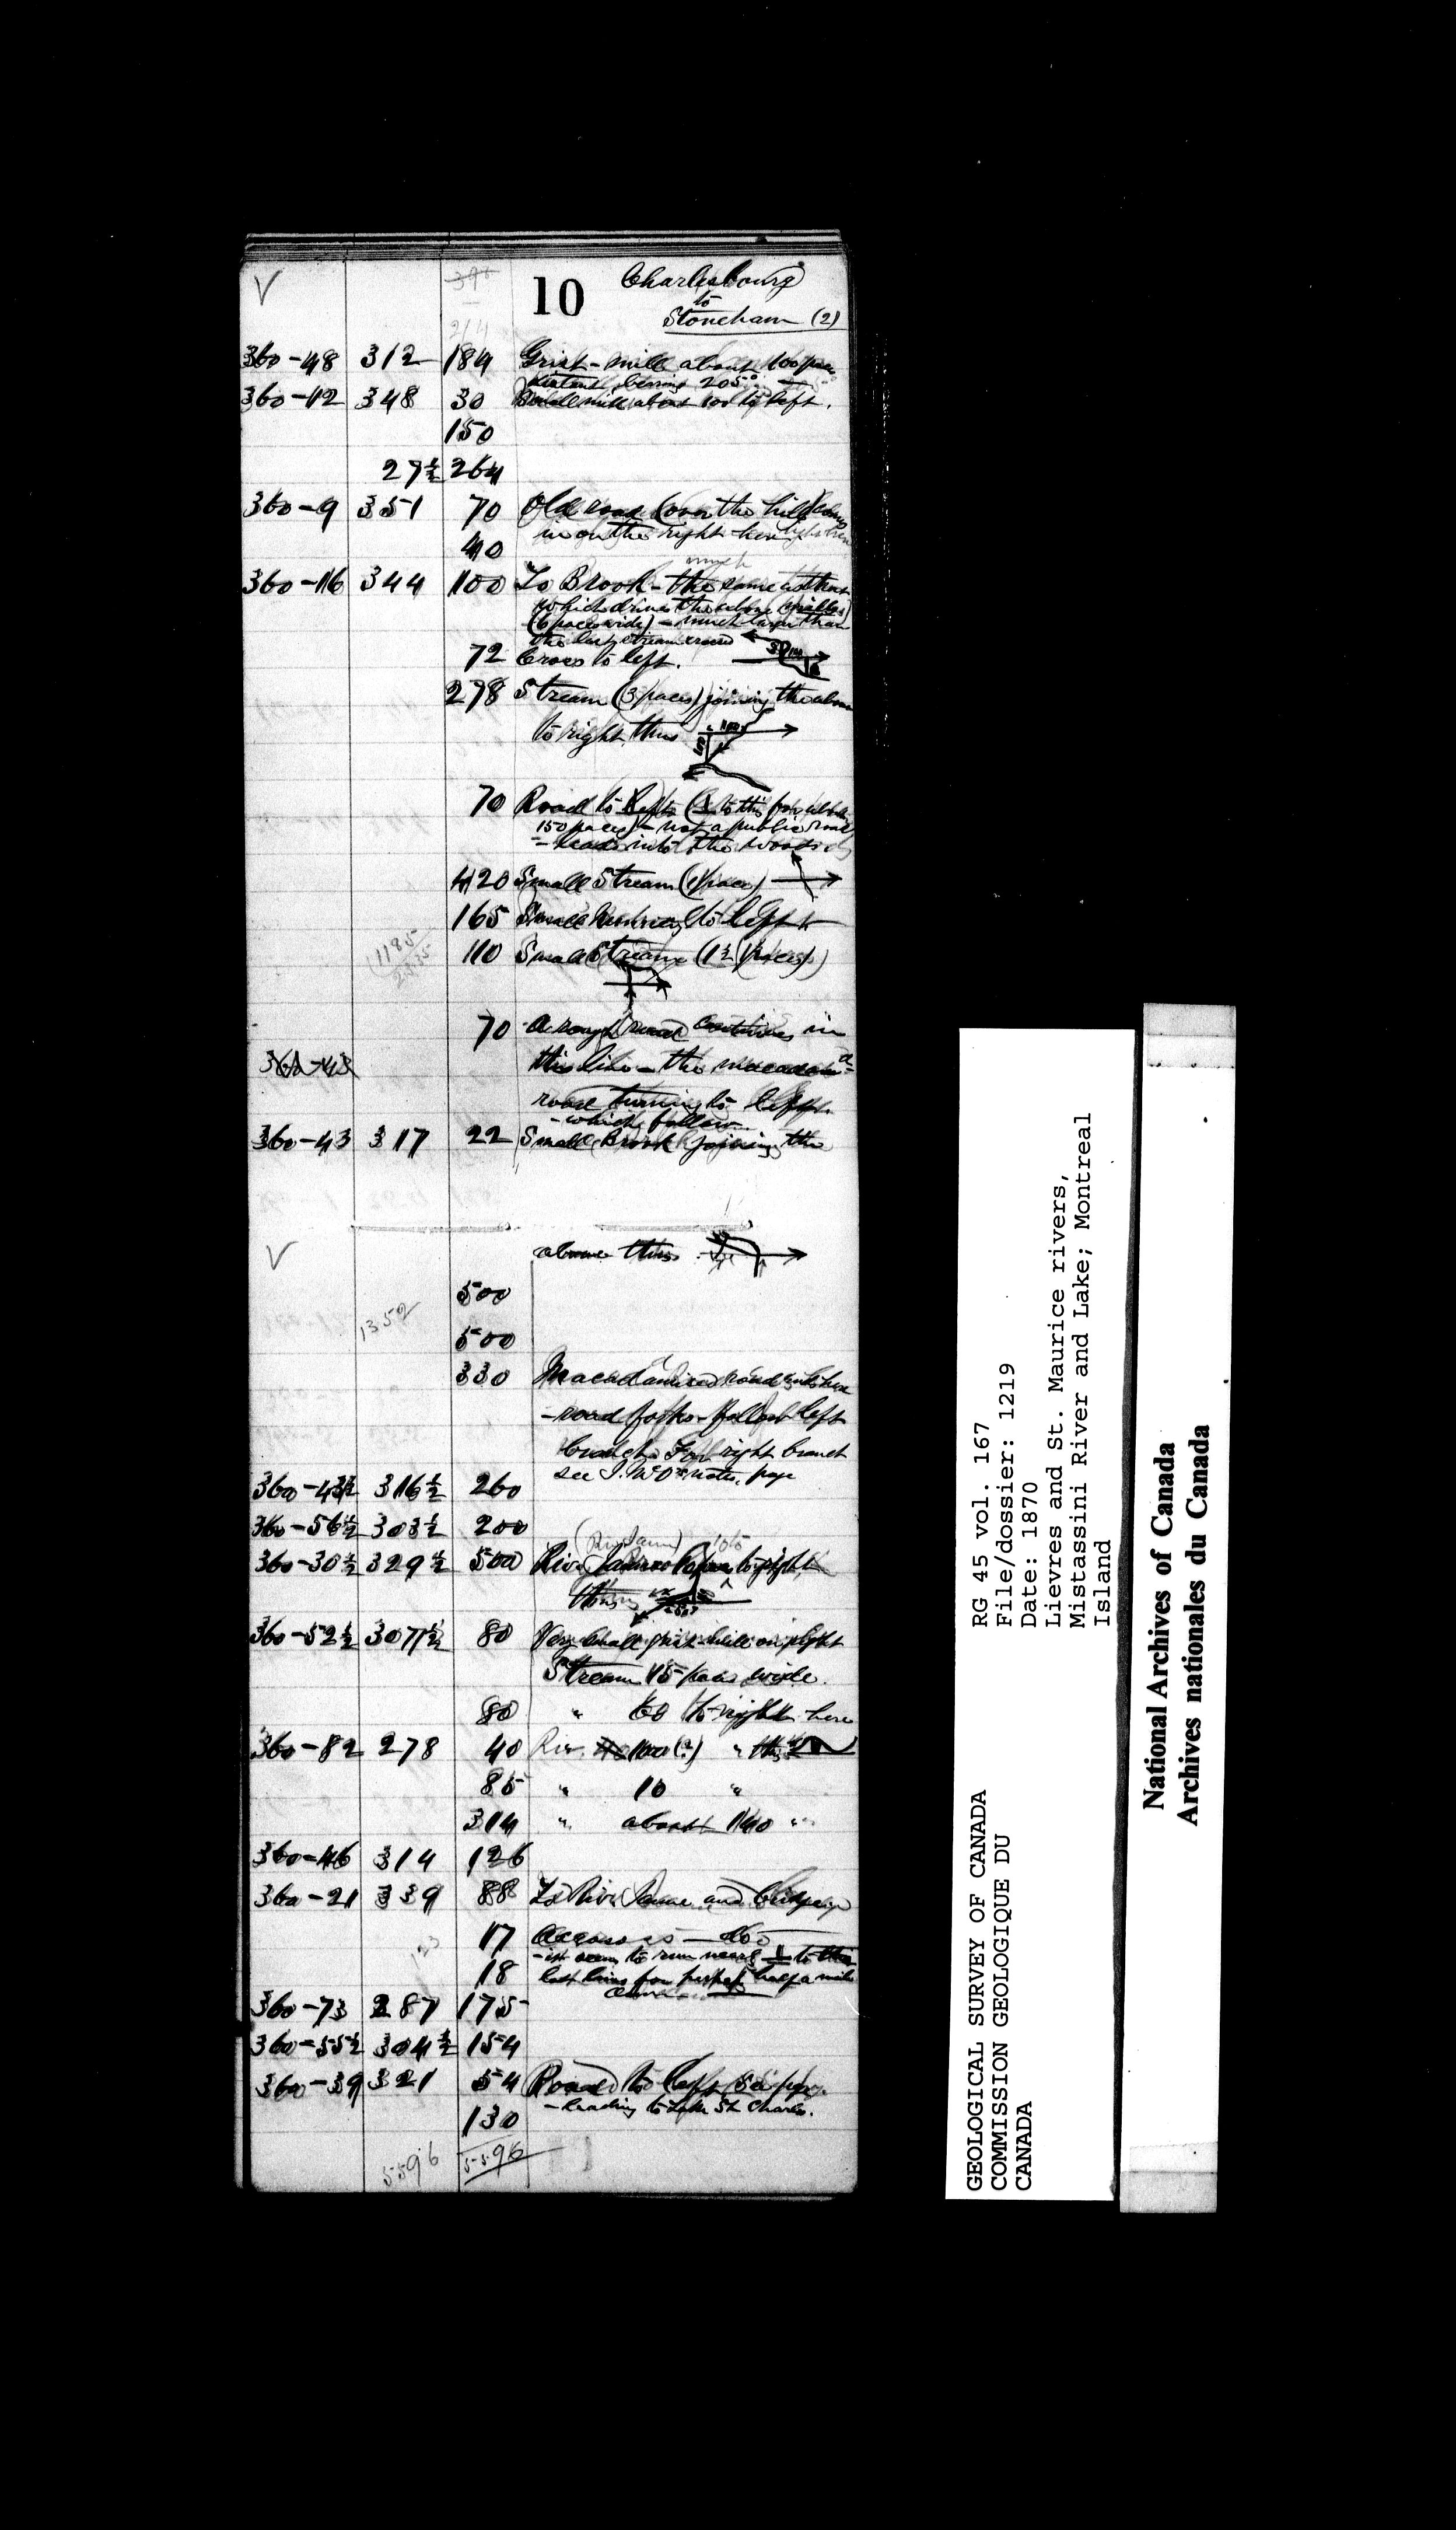 V 396 10 Charlesbourg
to
Stoneham (2)
214
360-48 312 184 Grist-mill about 100 paces
distant, bearing 205°
360-12 348 30 mill about 100 to left.
150
27½ 264
360-9 351 70 Old road (over the hill)
in on the right here
40
much
360-16 344 100 To Brook - the same as that
which drives the above mills
(6 paces wide) - much larger than
the last stream crossed
72 Cross to left.
278 Stream (3 paces) joining the above
to right, thus
70 Road to left (⊥ to this for about
150 paces) - not a public road
- leads into the woods
420 Small Stream (1 pace)
165 Small to left
1185
2335
110 Small Stream (1½ paces)
70 A rough road continues in
this line - the macadam-
road turning to left
- which follow
360-43 317 22 Small Brook joining the
V above thus
500
1352
500
330 Macadamized road ends here
- road forks - follow left
branch. For right branch
see J. McO's notes, page
360-43½ 316½ 260
360-56½ 303½ 200
360-30½ 329½ 500 River to right
thus
360-52½ 307½ 80 Very small grist-mill on right
Stream 15 paces wide.
80 " 60 to right here
360-82 278 40 Riv. 100(?) " thus
85 " 10 "
314 " about 140 "
360-46 314 126
360-21 339 88 To River Jaune and bridge
17 Across
- it seems to run nearly ⊥ to
18 last lines for perhaps half a mile
360-73 287 175
360-55½ 304½ 154
360-39 321 54 Road to left See page
- leading to Lake St. Charles.
130
5596 5596
RG 45 vol. 167
File/dossier: 1219
Date: 1870
Lievres and St. Maurice rivers,
Mistassini River and Lake; Montreal
Island
GEOLOGICAL SURVEY OF CANADA
COMMISSION GEOLOGIQUE DU
CANADA
National Archives of Canada
Archives nationales du Canada